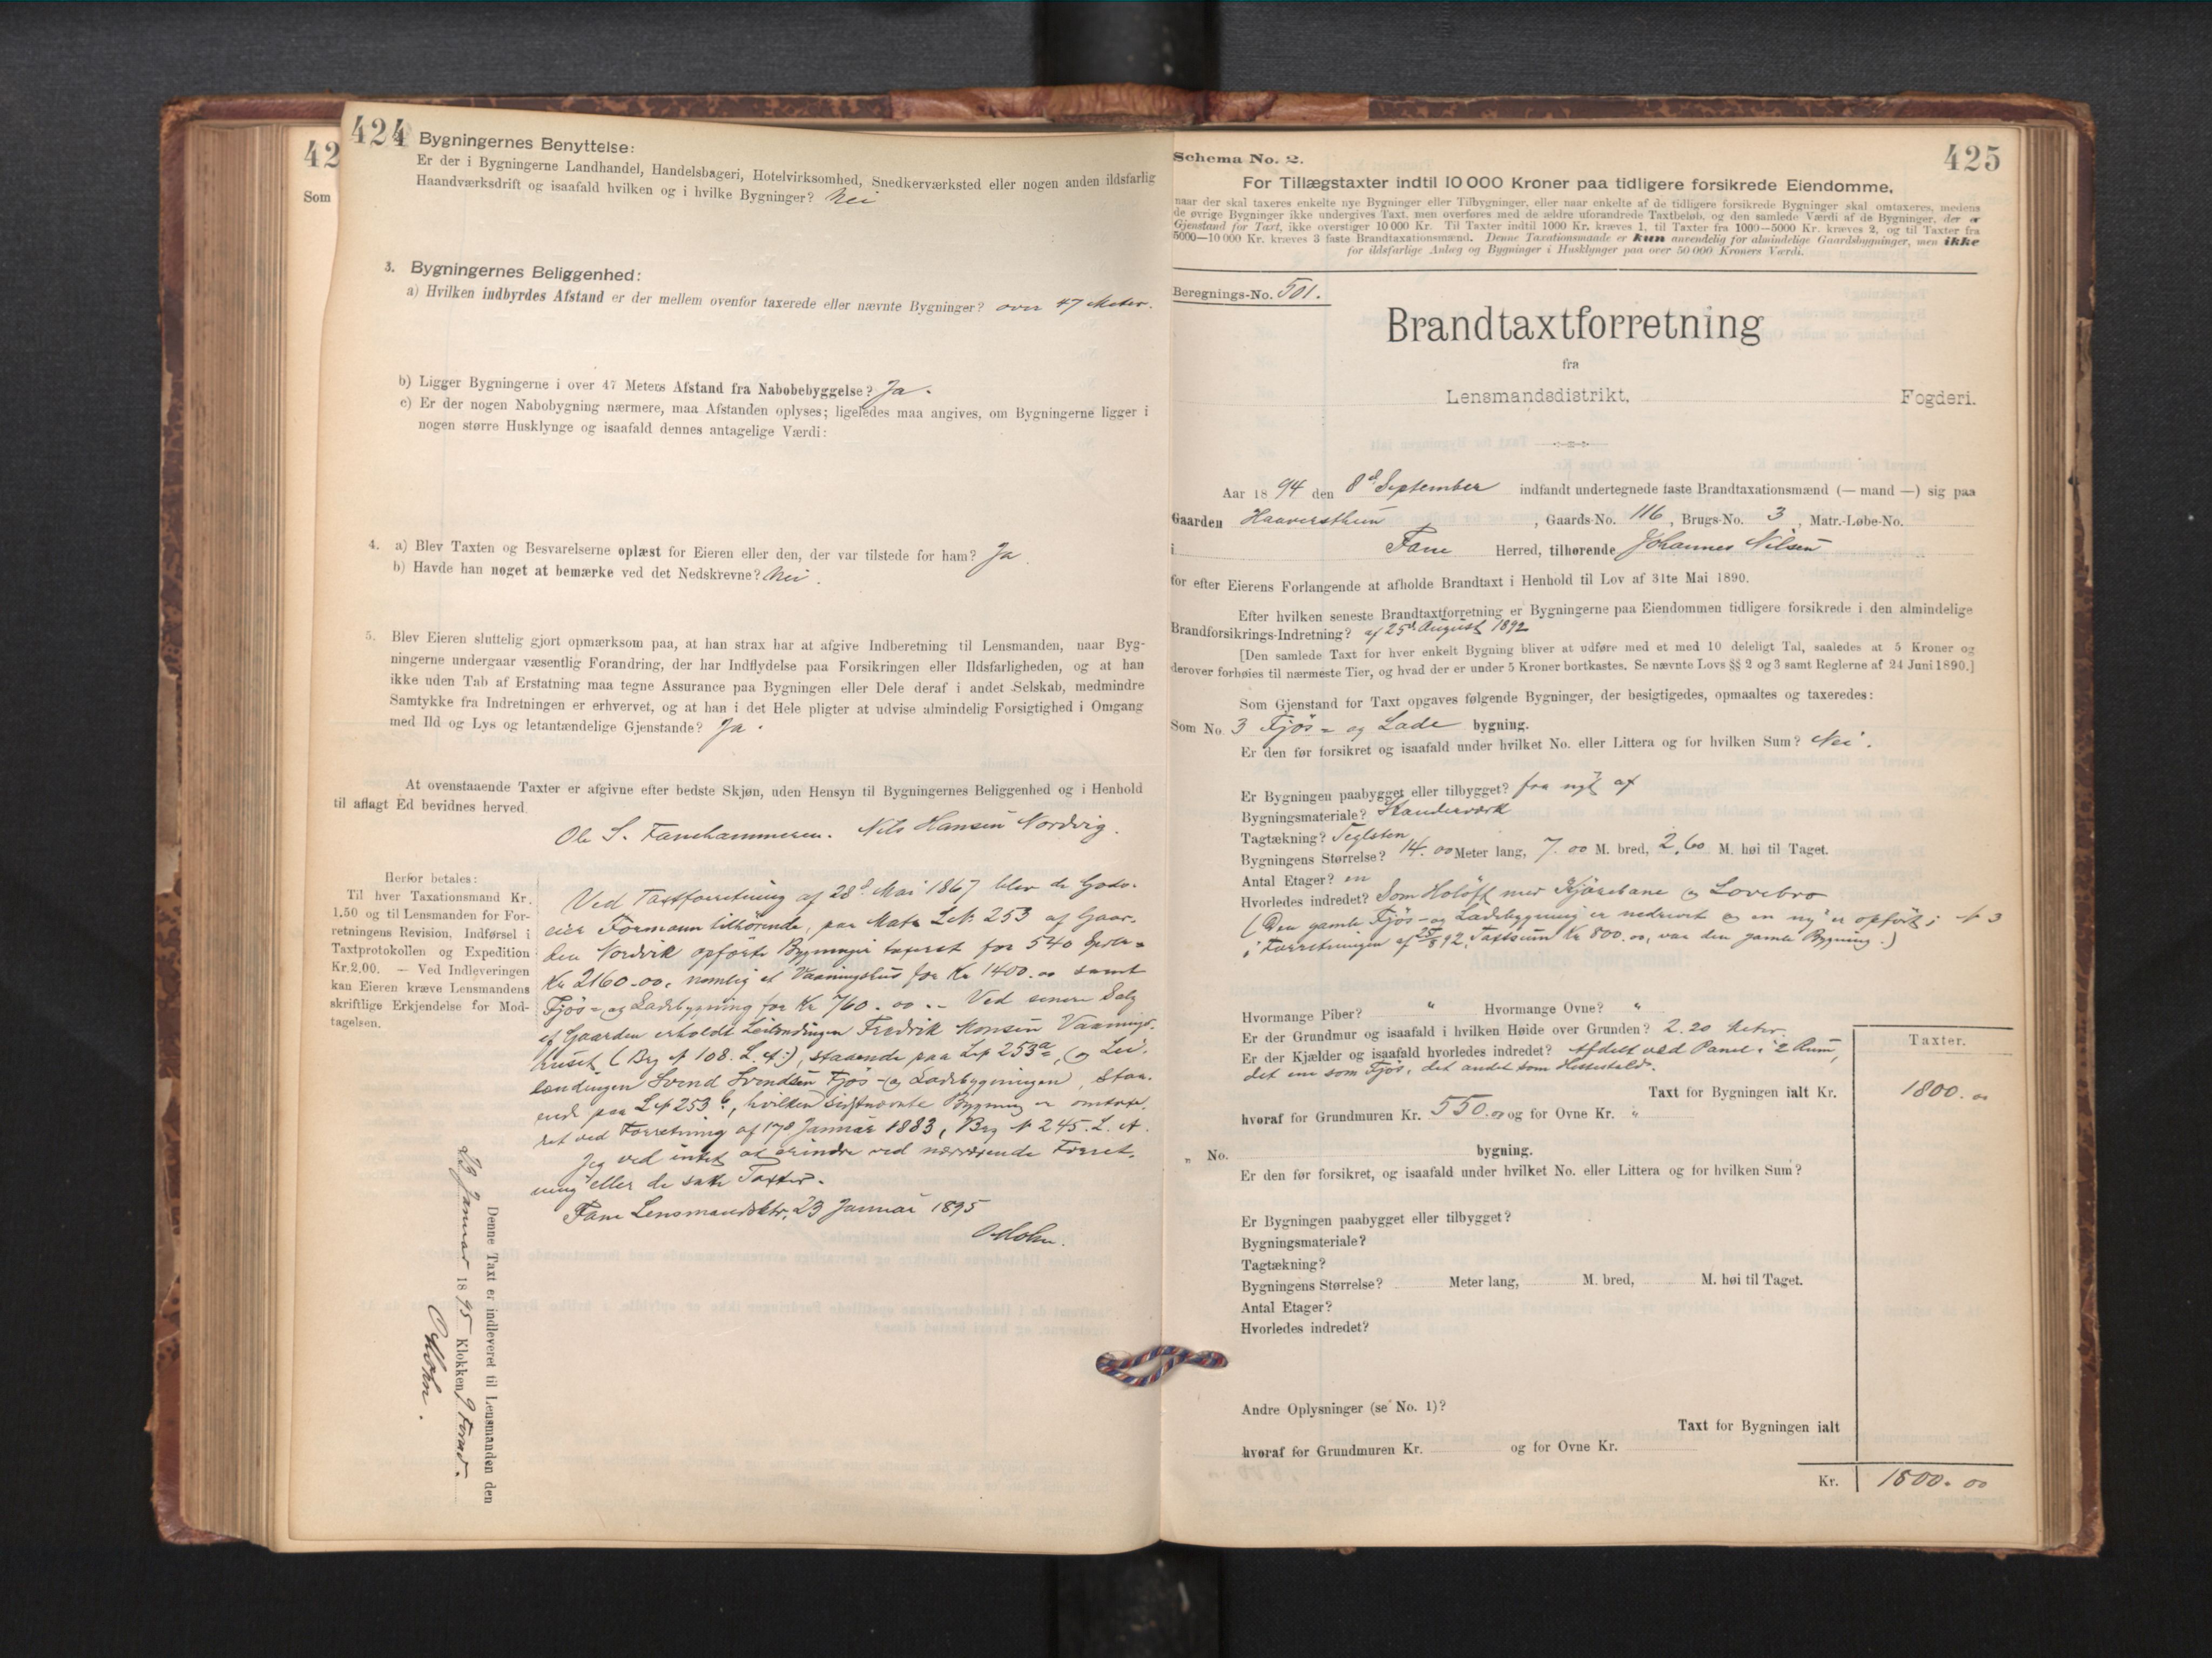 42
Som
424
Bygningernes Benyttelse:
Er der i Bygningerne Landhandel, Handelsbageri, Hotelvirksomhed, Snedkerværksted eller nogen anden ildsfarlig
Haandværksdrift og isaafald hvilken og i hvilke Bygninger? Nei
3. Bygningernes Beliggenhed:
a) Hvilken indbyrdes Afstand er der mellem ovenfor taxerede eller nævnte Bygninger? over 47 Meter.
b) Ligger Bygningerne i over 47 Meters Afstand fra Nabobebyggelse? Ja.
c) Er der nogen Nabobygning nærmere, maa Afstanden oplyses; ligeledes maa angives, om Bygningerne ligger i
nogen større Husklynge og isaafald dennes antagelige Værdi:
4. a) Blev Taxten og Besvarelserne oplæst for Eieren eller den, der var tilstede for ham? Ja.
b) Havde han noget at bemærke ved det Nedskrevne? Nei.
5. Blev Eieren sluttelig gjort opmærksom paa, at han strax har at afgive Indberetning til Lensmanden, naar Byg-
ningerne undergaar væsentlig Forandring, der har Indflydelse paa Forsikringen eller Ildsfarligheden, og at han
ikke uden Tab af Erstatning maa tegne Assurance paa Bygningen eller Dele deraf i andet Selskab, medmindre
Samtykke fra Indretningen er erhvervet, og at han i det Hele pligter at udvise almindelig Forsigtighed i Omgang
med Ild og Lys og letantændelige Gjenstande? Ja.
At ovenstaaende Taxter er afgivne efter bedste Skjøn, uden Hensyn til Bygningernes Beliggenhed og i Henhold
til aflagt Ed bevidnes herved.
Ole S. Fanehammeren. Nils Hansen Nordvig.
Herfor betales:
Til hver Taxationsmand Kr.
1.50 og til Lensmanden for For-
retningens Revision, Indførsel i
Taxtprotokollen og Expedition
Kr. 2,00. — Ved Indleveringen
kan Eieren kræve Lensmandens
skriftlige Erkjendelse for Mod-
tagelsen.
Ved Taxtforretning af 28d Mai 1867 blev de Gods-
eier Formann tilhørende, paa Matr. L No 253 af Gaar-
den Nordvik opførte Bygninger taxeret for 540 Spdlr =
Kr 2160.00, nemlig et Vaaningshus for Kr 1400.00 samt
Fjøs- og Ladebygning for Kr 760.00. - Ved senere Salg
af Gaarden erholdt Leilændingen Fredrik Monsen Vaanings-
huset (Brg No 108. L. A:), staaende paa L No 253a, og Lei-
lændingen Svend Svendsen Fjøs- og Ladebygningen, staa-
ende paa L No 253b, hvilken sidstnævnte Bygning er omtaxe-
ret ved Forretning af 17d Januar 1883, Brg No 245. L. A.
Jeg ved intet at erindre ved nærværende Forret-
ning eller de satte Taxter.
Fane Lensmandsktr, 23 Januar 1895
O Mohn.
Denne Taxt er indleveret til Lensmanden den
23 Januar 1895 Klokken 9 Formd.
O Mohn.
425
Schema No. 2.
For Tillægstaxter indtil 10 000 Kroner paa tidligere forsikrede Eiendomme,
naar der skal taxeres enkelte nye Bygninger eller Tilbygninger, eller naar enkelte af de tidligere forsikrede Bygninger skal omtaxeres, medens
de øvrige Bygninger ikke undergives Taxt, men overføres med de ældre uforandrede Taxtbeløb, og den samlede Værdi af de Bygninger, der er
Gjenstand for Taxt, ikke overstiger 10 000 Kr. Til Taxter indtil 1000 Kr. kræves 1, til Taxter fra 1000—5000 Kr. kræves 2, og til Taxter fra
5000—10 000 Kr. kræves 3 faste Brandtaxationsmænd. Denne Taxationsmaade er kun anvendelig for almindelige Gaardsbygninger, men ikke
for ildsfarlige Anlæg og Bygninger i Husklynger paa over 50 000 Kroners Værdi.
Beregnings-No. 501.
Brandtaxtforretning
fra
Lensmandsdistrikt, Fogderi.
Aar 1894 den 8d September indfandt undertegnede faste Brandtaxationsmænd (— mand —) sig paa
Gaarden Haaversthun, Gaards-No. 116, Brugs-No. 3, Matr.-Løbe-No.
i Fane Herred, tilhørende Johannes Nilsen
for efter Eierens Forlangende at afholde Brandtaxt i Henhold til Lov af 31te Mai 1890.
Efter hvilken seneste Brandtaxtforretning er Bygningerne paa Eiendommen tidligere forsikrede i den almindelige
Brandforsikrings-Indretning? af 25d August 1892
[Den samlede Taxt for hver enkelt Bygning bliver at udføre med et med 10 deleligt Tal, saaledes at 5 Kroner og
derover forhøies til nærmeste Tier, og hvad der er under 5 Kroner bortkastes. Se nævnte Lovs §§ 2 og 3 samt Reglerne af 24 Juni 1890.]
Som Gjenstand for Taxt opgaves følgende Bygninger, der besigtigedes, opmaaltes og taxeredes:
Som No. 3 Fjøs- og Lade bygning.
Er den før forsikret og isaafald under hvilket No. eller Littera og for hvilken Sum? Nei.
Er Bygningen paabygget eller tilbygget? fra nyt af
Bygningsmateriale? Standerværk
Tagtækning? Teglsten
Bygningens Størrelse? 14.00 Meter lang, 7.00 M. bred, 2,60 M. høi til Taget.
Antal Etager? en
Hvorledes indredet? Som Holøft med Kjørebane og Lovebro
(Den gamle Fjøs- og Ladebygning er nedrevet og en ny er opført; No 3
i Forretningen af 25/8 92, Taxtsum Kr 800.00, var den gamle Bygning.)
Hvormange Piber? " Hvormange Ovne? "
Er der Grundmur og isaafald i hvilken Høide over Grunden? 2.20 Meter.
Er der Kjælder og isaafald hvorledes indredet? Afdelt ved Panel i 2 Rum,
det ene som Fjøs, det andet som Hestestald.
Taxter.
Taxt for Bygningen ialt Kr. 1800.00
hvoraf for Grundmuren Kr. 550.00 og for Ovne Kr. "
" No. bygning.
Er den før forsikret, og isaafald under hvilket No. eller Littera og for hvilken Sum?
Er Bygningen paabygget eller tilbygget?
Bygningsmateriale?
Tagtækning?
Bygningens Størrelse? Meter lang, M. bred, M. høi til Taget.
Antal Etager?
Hvorledes indredet?
Andre Oplysninger (se No. 1)?
Taxt for Bygningen ialt
hvoraf for Grundmuren Kr. og for Ovne Kr.
Kr. 1800.00